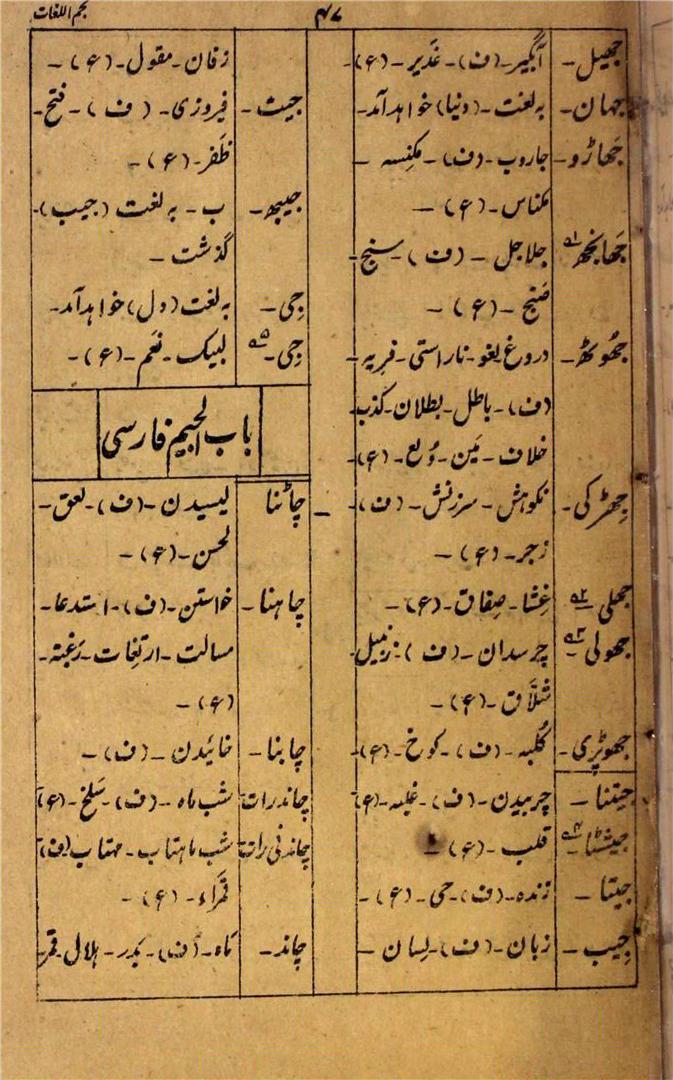 ۴۷
نجم اللغات
جھیل - آبگیر - (ف) - غَدیر - (ع) -
جہان - بہ لغت - (دنیا) خواہد آمد -
جَھاڑو - جاروب - (ف) - مکنِسہ -
مکناس - (ع) -
جَھانجھ ۱ھ جلاجل - (ف) - سنج -
صَنج - (ع) -
جُھوٹھ - دروغ - لغو - ناراستی - فریہ -
(ف) - باطل - بطلان - کذب
خلاف - مَین - وَلع - (ع) -
جِھڑکی - نکوہش - سرزنش - (ف) -
زجر - (ع) -
جھلی ۲ھ غِشا - صِفاق - (ع) -
جھولی ۳ھ چرسدان - (ف) - زنبیل
شلّاق - (ع) -
جھوپڑی - کُلبہ - (ف) - کوخ - (ع) -
جیتنا - چربیدن - (ف) - غلبہ - (ع)
۴ھ قلب - (ع) -
جیتا - زندہ - (ف) - حی - (ع) -
جِیب - زبان - (ف) - لِسان -
زفان - مقول - (ع) -
جیت - فیروزی - (ف) - فتح -
ظَفر - (ع) -
جیبھ - ب - بہ لغت (جیب) -
گذشت -
جِی - بہ لغت (دل) خواہد آمد -
جِی - ۵ھ لبیک - نَعَم - (ع) -
باب الجیم فارسی
چاٹنا - لیسیدن - (ف) - لعق -
لحس - (ع) -
چاہنا - خواستن - (ف) - استدعا -
مسالت - ارتغات - رَغبتہ -
(ع) -
چابنا - خائیدن - (ف) -
چاندرات شب ماہ - (ف) - سَلخ - (ع)
چاندنی رات شب ماہتاب - مہتاب (ف)
قمراء - (ع) -
چاند - ماہ - (ف) - بدر - ہلال - قمر -